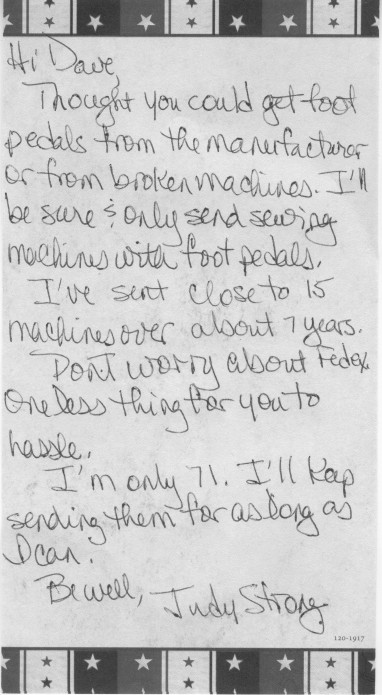 Hi Dave,
Thought you could get foot
pedals from the manufacturer
or from broken machines. I'll
be sure & only send sewing
machines with foot pedals.
I've sent close to 15
machines over about 7 years.
Don't worry about Fedex.
One less thing for you to
hassle.
I'm only 71. I'll keep
sending them for as long as
I can.
Be well, Judy Strong
120-1917